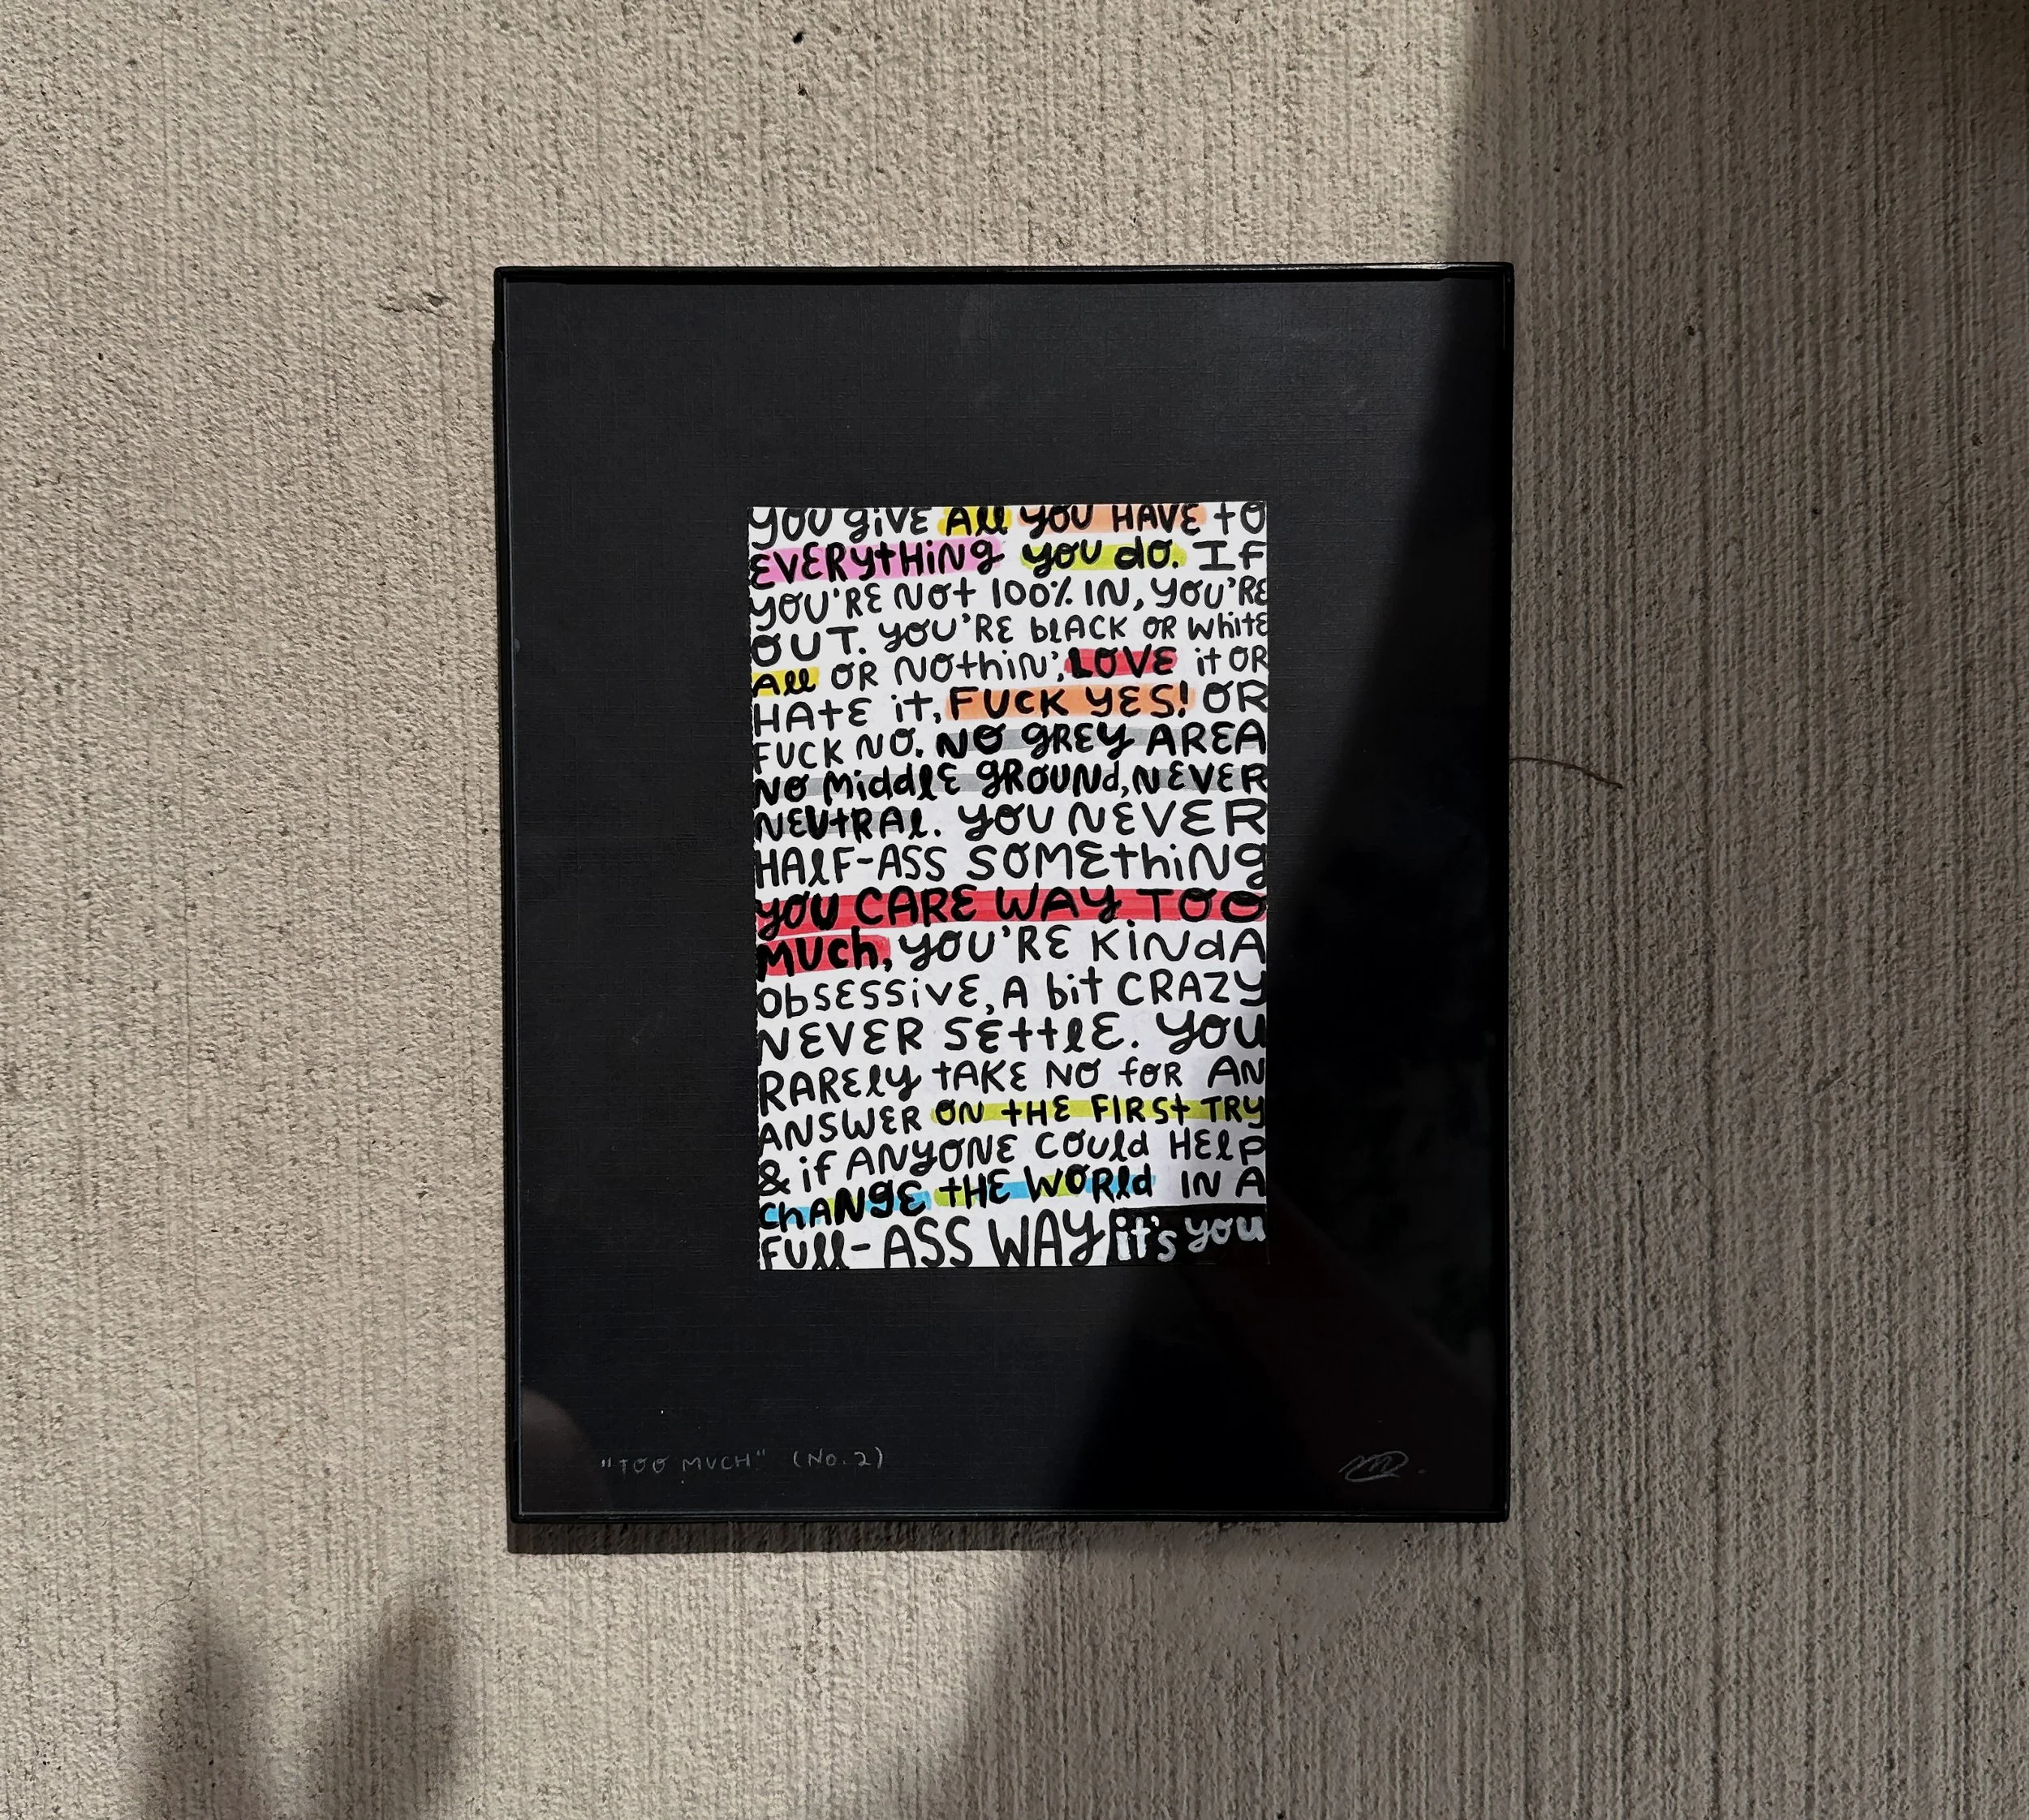 YOU GIVE All YOU HAVE tO
EVERYtHiNg you do. IF
YOU'RE NOt 100% IN, YOU'RE
OUT. YOU'RE blACK OR WhitE
All OR NOthiN', LOVE it OR
HAtE it, FUCK YES! OR
FUCK NO. NO gREY AREA
NO MiddlE gROUNd, NEVER
NEUtRAl. YOU NEVER
HAlF-ASS SOMEthiNg
YOU CARE WAY TOO
MUCh, YOU'RE KiNdA
ObSESSiVE, A bit CRAZY
NEVER SEttlE. YOU
RARElY tAKE NO foR AN
ANSWER ON tHE FIRSt TRY
& if ANYONE COUld HElP
ChANgE tHE WORld IN A
FUll-ASS WAY it's you
"TOO MUCH" (No. 2)